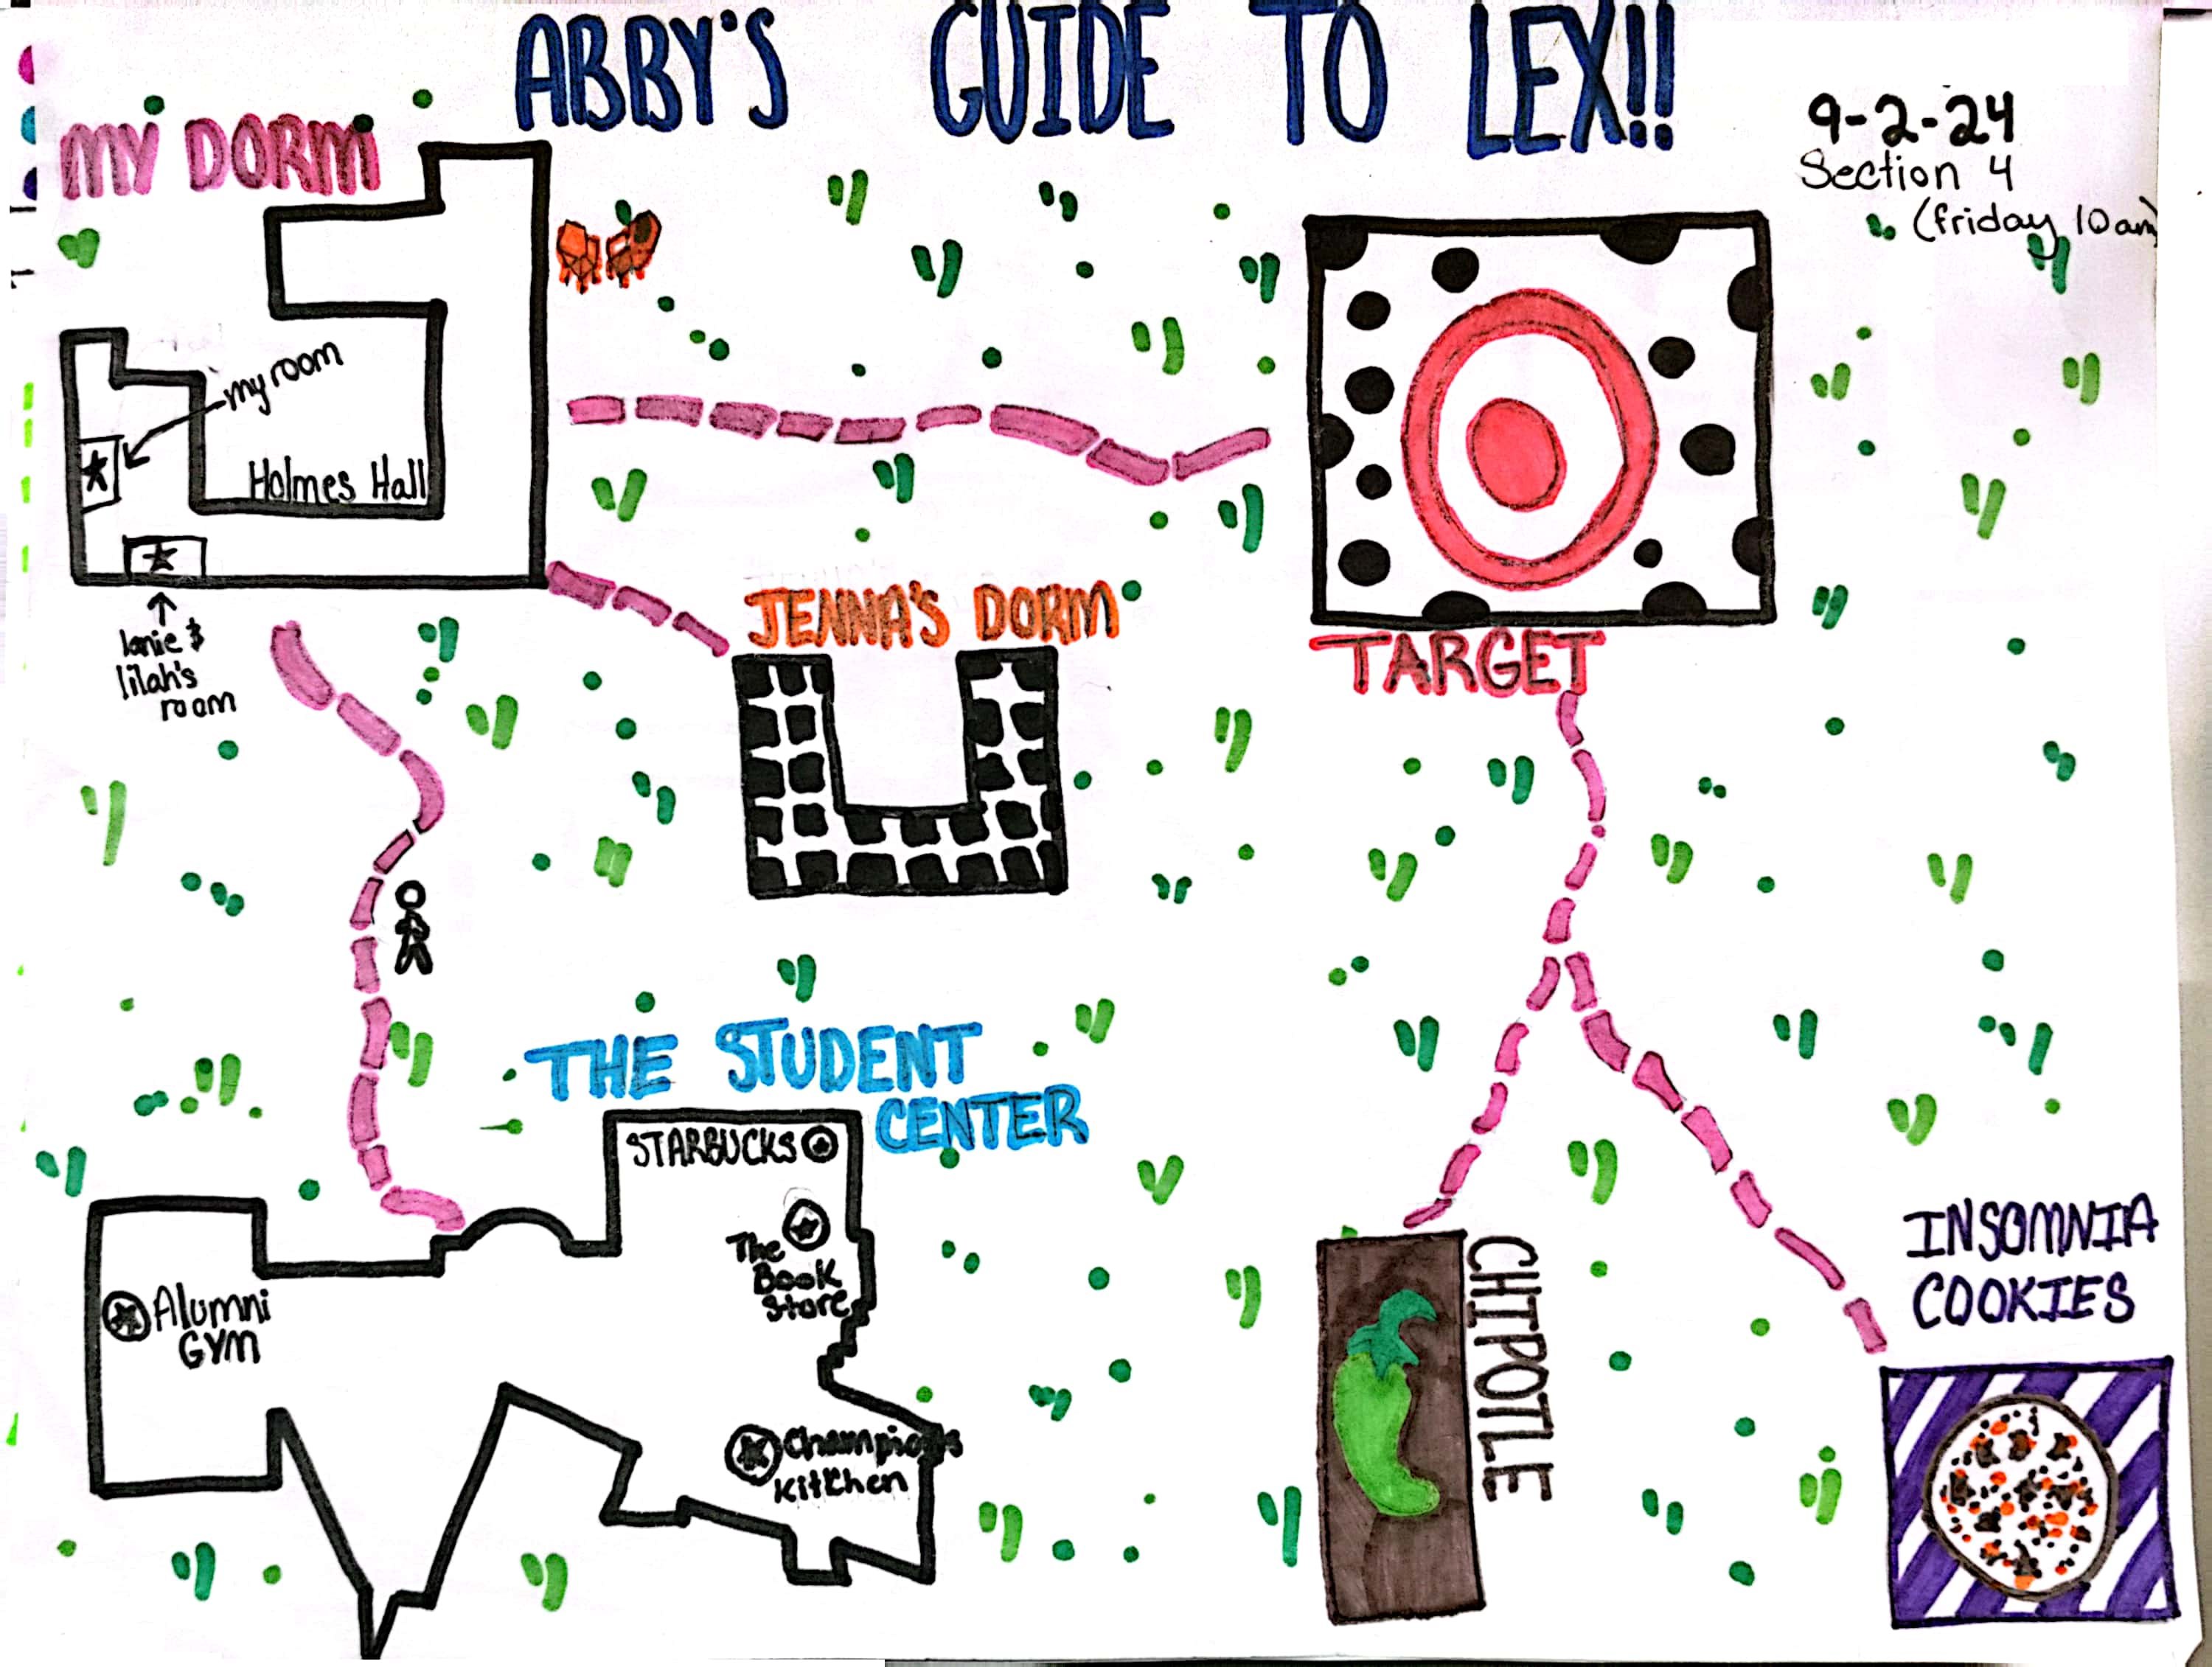 ABBY'S GUIDE TO LEX!!
9-2-24
Section 4
(friday 10am)
MY DORM
my room
Holmes Hall
lanie &
lilah's
room
JENNA'S DORM
TARGET
THE STUDENT
CENTER
STARBUCKS
The
Book
Store
Alumni
GYM
Champions
Kitchen
CHIPOTLE
INSOMNIA
COOKIES